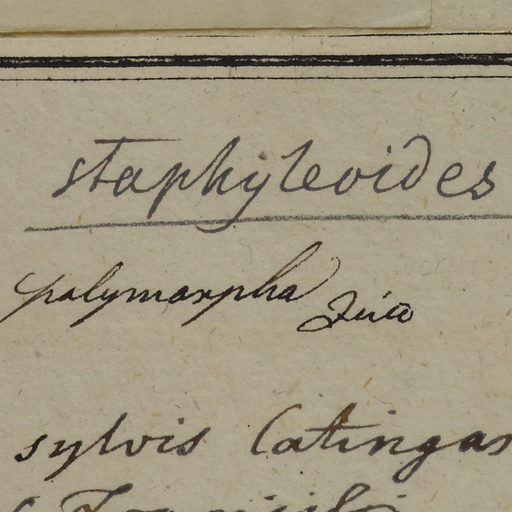 staphyleoides
polymorpha
sylvis Catingas